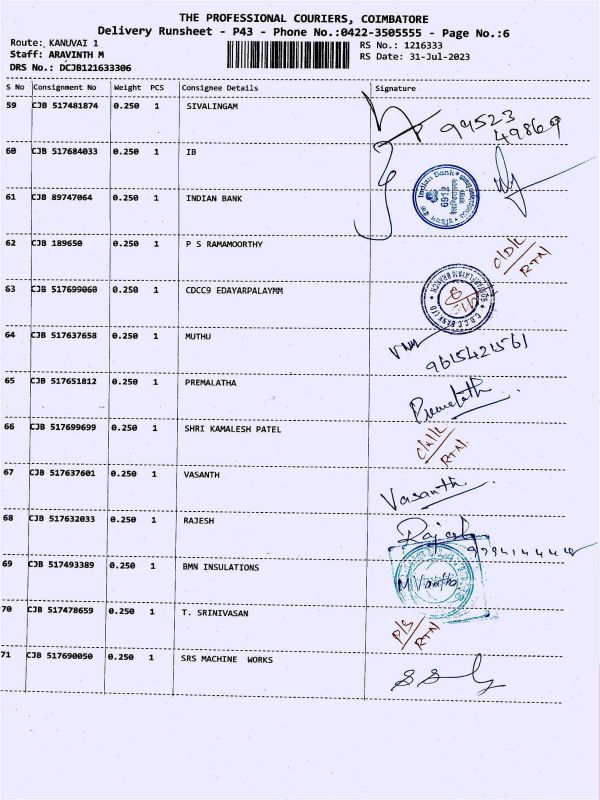 THE PROFESSIONAL COURIERS, COIMBATORE
Delivery Runsheet - P43 - Phone No.:0422-3505555 - Page No.:6
Route: KANUVAI 1
RS No.: 1216333
Staff: ARAVINTH M
RS Date: 31-Jul-2023
DRS No.: DCJB121633306
S No Consignment No Weight PCS Consignee Details Signature
59 CJB 517481874 0.250 1 SIVALINGAM
99523
49869
60 CJB 517684033 0.250 1 IB
61 CJB 89747064 0.250 1 INDIAN BANK
Indian Bank
6912
62 CJB 189650 0.250 1 P S RAMAMOORTHY
RTN
63 CJB 517699060 0.250 1 CDCC9 EDAYARPALAYMM
64 CJB 517637658 0.250 1 MUTHU
9615421561
65 CJB 517651812 0.250 1 PREMALATHA
Premalath
66 CJB 517699699 0.250 1 SHRI KAMALESH PATEL
RTN
67 CJB 517637601 0.250 1 VASANTH
Vasanth
68 CJB 517632033 0.250 1 RAJESH
Rajesh
69 CJB 517493389 0.250 1 BMN INSULATIONS
70 CJB 517478659 0.250 1 T. SRINIVASAN
P/S
RTN
71 CJB 517690050 0.250 1 SRS MACHINE WORKS